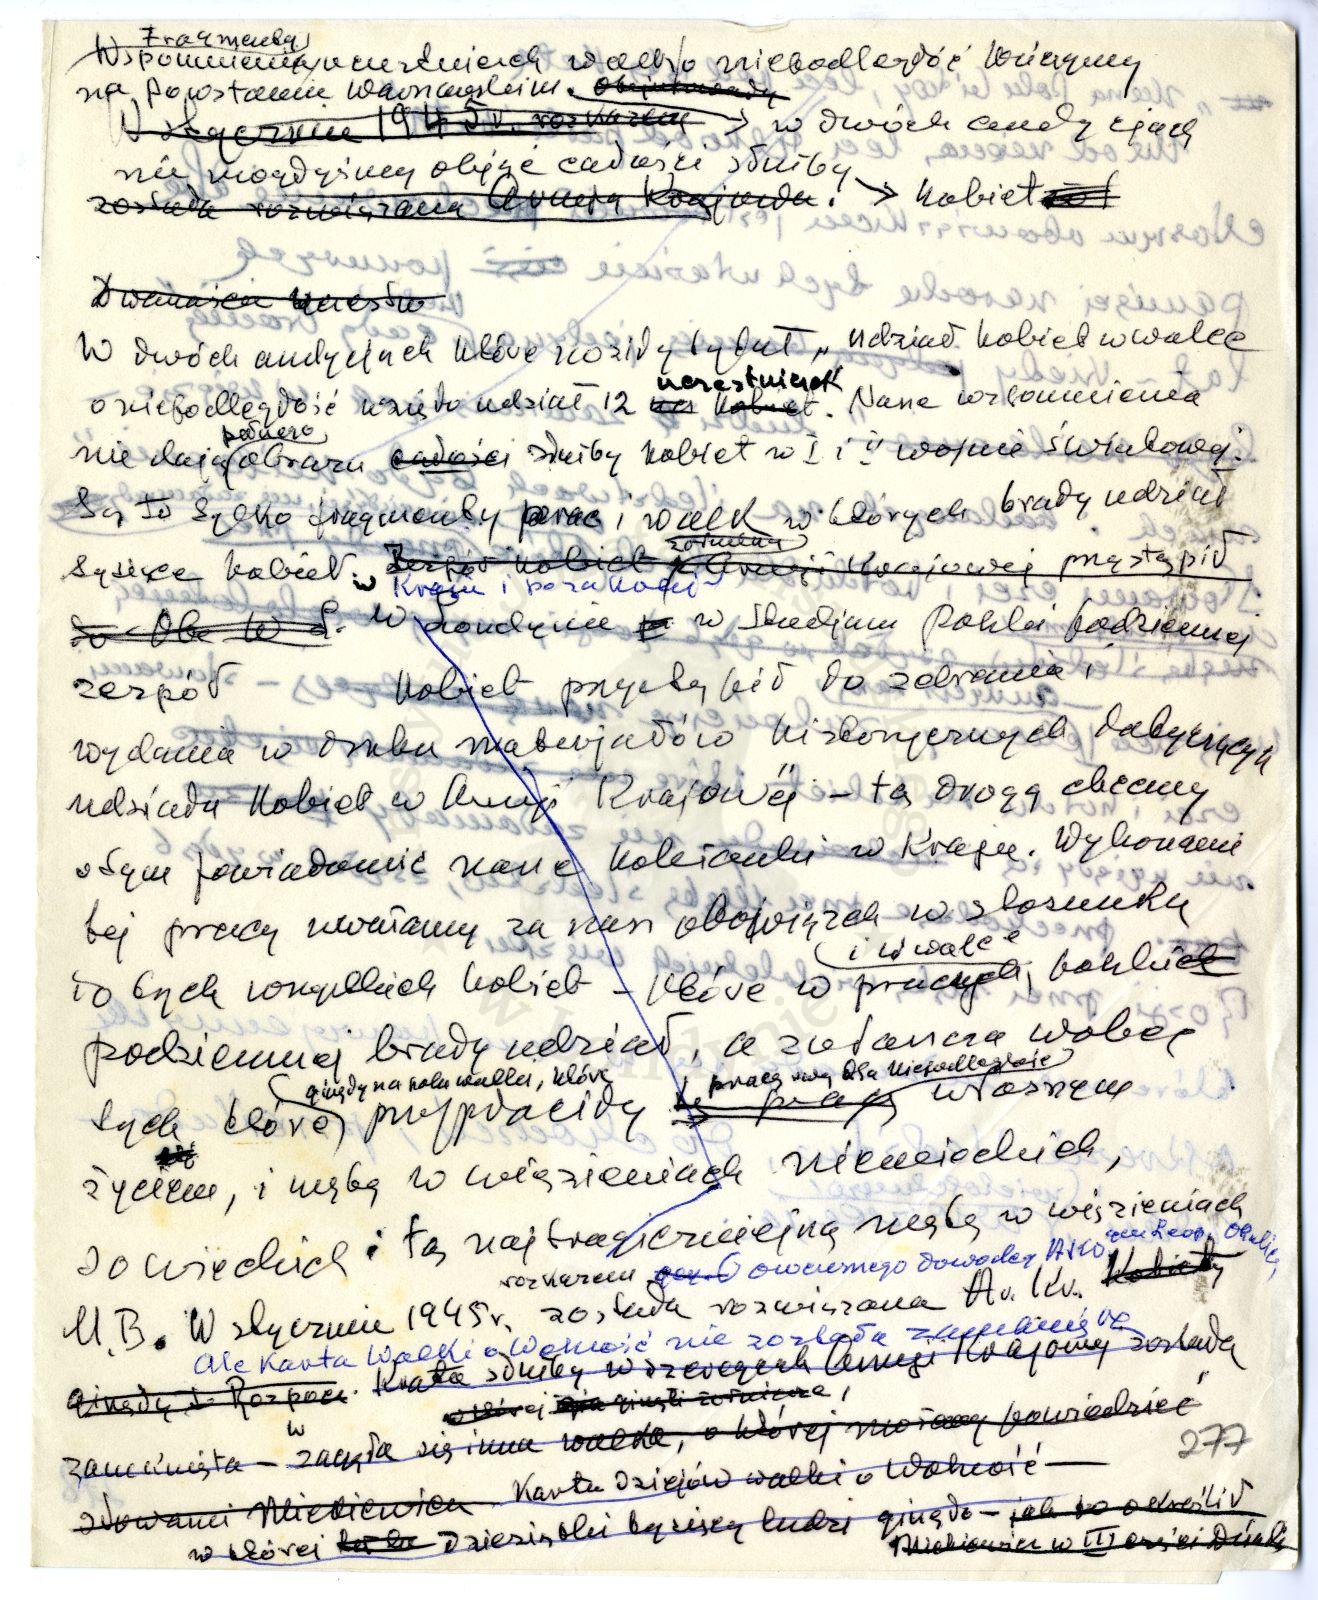 Fragmenty
Wspomnienia uczestniczek walk o niepodległość kończymy
na Powstaniu Warszawskim.
W styczniu 1945 r. rozkazem → w dwóch audycjach
nie mogłyśmy objąć całości służby
została rozwiązana Armia Krajowa. → Kobiet
Dwanaście
W dwóch audycjach które nosiły tytuł „Udział Kobiet w walce
uczestniczek
o niepodległość wzięło udział 12 Kobiet. Nasze wspomnienia
pełnego
nie dają obrazu całości służby Kobiet w I i II wojnie światowej.
Są to tylko fragmenty prac i walk w których brały udział
żołnierzy
tysiące Kobiet. Zespół Kobiet Armii Krajowej przystąpił
w Kraju i poza Krajem
do W Londynie w Studium Polski Podziemnej
zespół Kobiet przystąpił do zebrania i
wydania w druku materjałów historycznych dotyczących
udziału Kobiet w Armji Krajowej" – tą drogą chcemy
o tym powiadomić nasze koleżanki w Kraju. Wykonanie
tej pracy uważamy za nasz obowiązek w stosunku
i w walce
do tych wszystkich Kobiet – które w pracach, polskiej
podziemnej brały udział, a zwłaszcza wobec
ginęły na polu walki, które pracę swą dla Niepodległości
tych które przypłaciły własnym
życiem, i męką w więzieniach niemieckich,
sowieckich i tą najtragiczniejszą męką w więzieniach
rozkazem gen. ówczesnego dowódcy AK gen Leop. Okulic.
U.B. W styczniu 1945 r. została rozwiązana Ar. Kr. Kobiety
Ale Karta Walki o Wolność nie została zamknięta
ginęły Karta służby w szeregach Armji Krajowej została
w której ginęli żołnierze,
zamknięta – zaczęła się inna walka, o której możemy powiedzieć
277
słowami Mickiewicza Karta dziejów walki o Wolność –
w której dziesiątki tysięcy ludzi ginęło – jak to określił
Mickiewicz w III części Dziadów